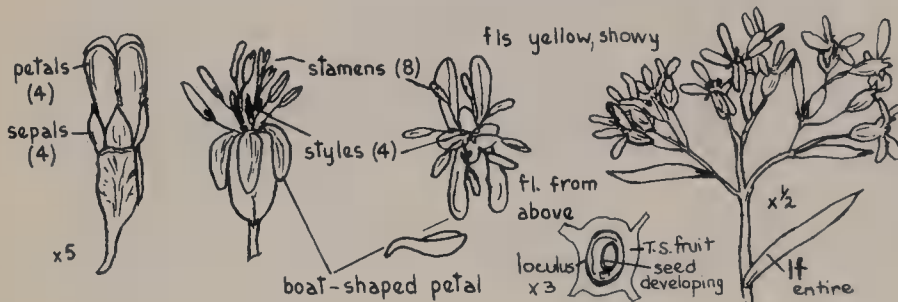 petals
(4)
sepals
(4)
x5
stamens (8)
styles (4)
boat-shaped petal
fls yellow, showy
fl. from
above
loculus
x3
T.S. fruit
seed
developing
x ½
lf
entire